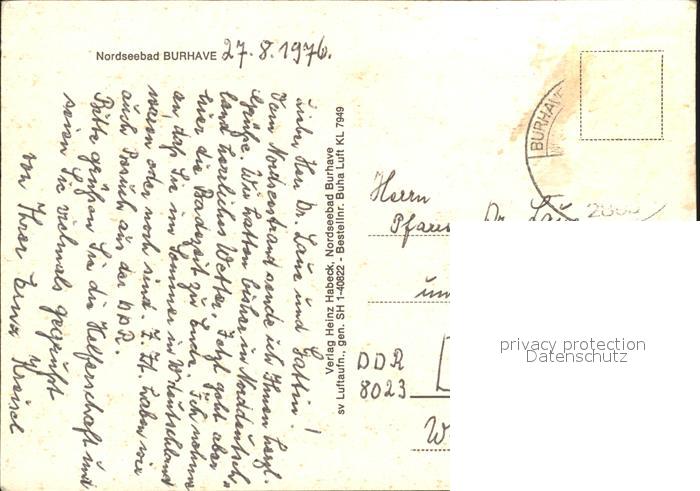 Nordseebad BURHAVE 27.8.1976.
Lieber Herr Dr. Laue und Gattin!
Vom Nordseestrand sende ich Ihnen herzl.
Grüße. Wir hatten bisher in Norddeutsch-
land herrliches Wetter. Jetzt geht aber
hier die Badezeit zu Ende. Ich nehme
an daß Sie im Sommer in Wdeutschland
waren oder noch sind. Z. Zt. haben wir
auch Besuch aus der DDR.
Bitte grüßen Sie die Helferschaft und
seien Sie vielmals gegrüßt
von Ihrer
Verlag Heinz Habeck, Nordseebad Burhave
sv Luftaufn., gen. SH 1-40822 - Bestellnr. Buha Luft KL 7949
BURHAVE
Herrn
Dr.
DDR
8023
privacy protection
Datenschutz